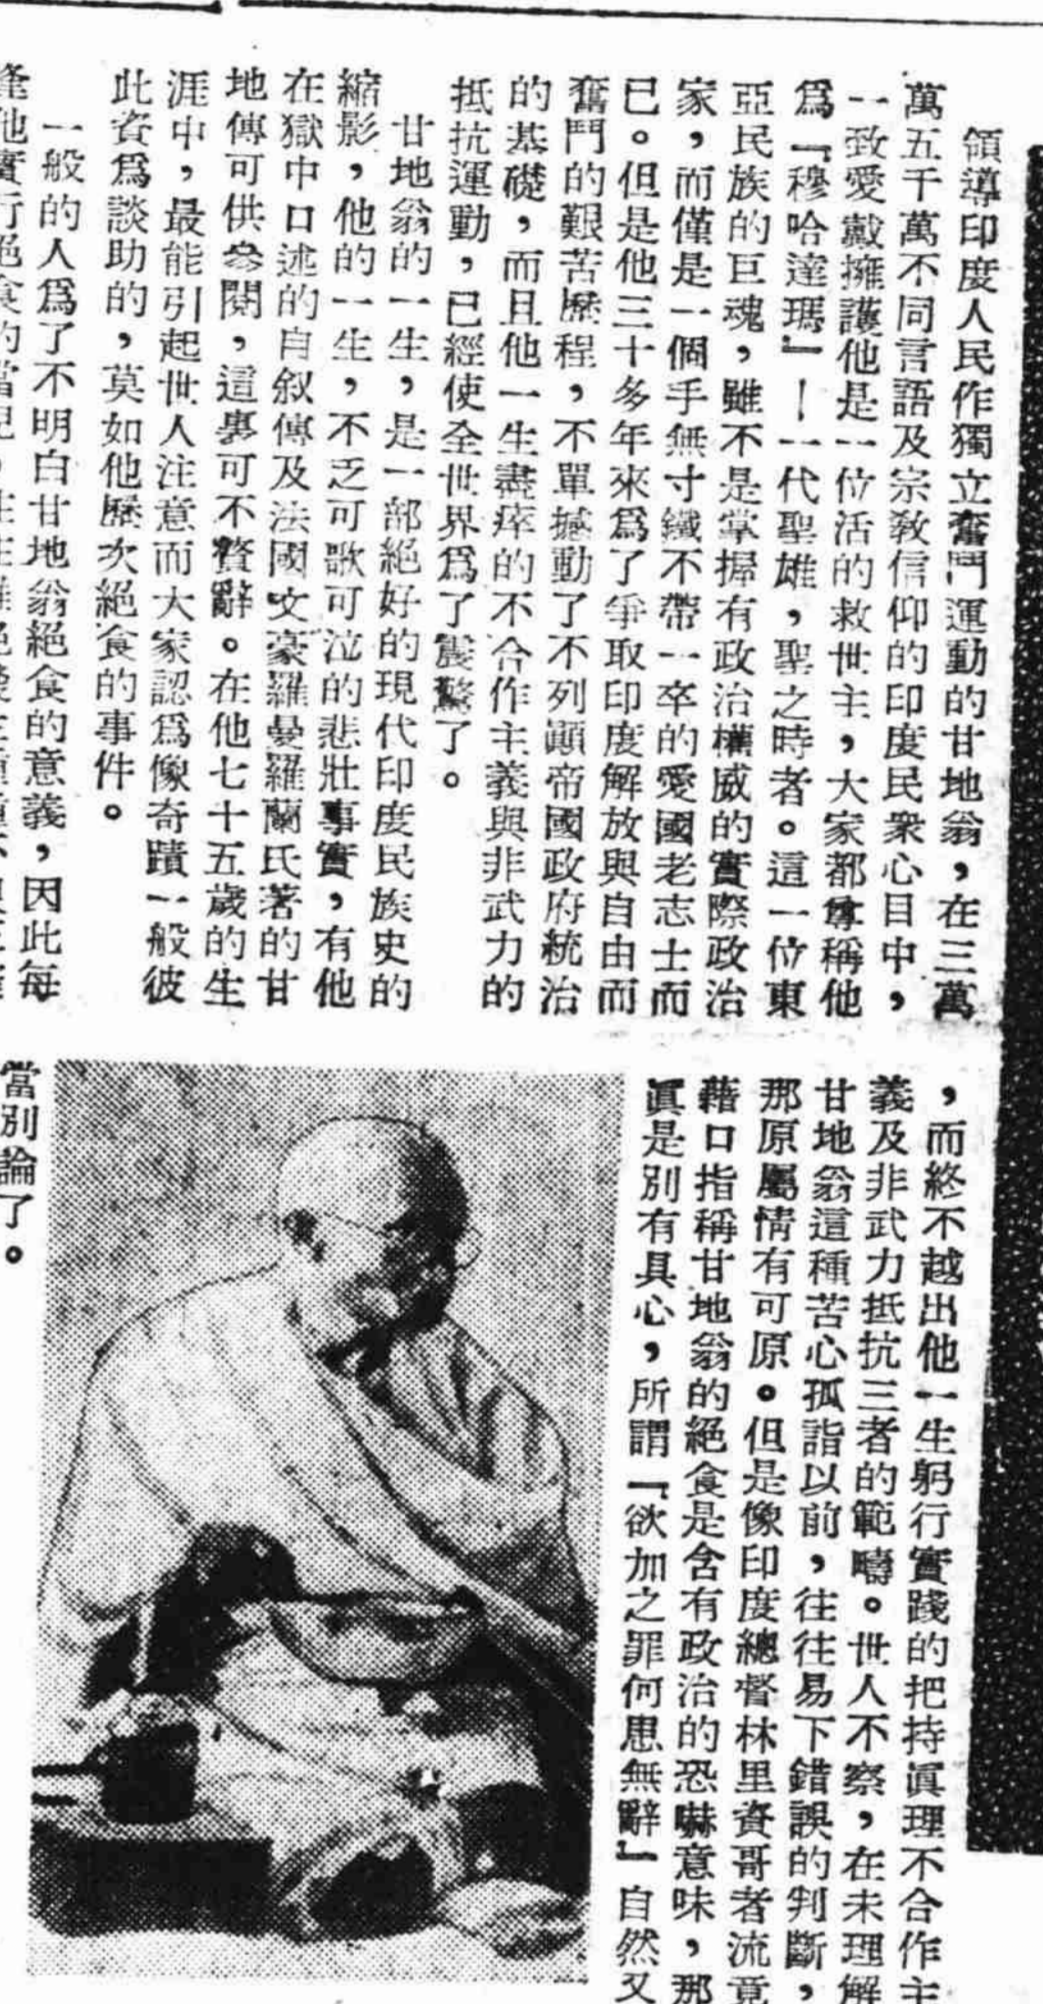 領導印度人民作獨立奮鬥運動的甘地翁，在三萬
萬五千萬不同言語及宗教信仰的印度民衆心目中，
一致愛戴擁護他是一位活的救世主，大家都尊稱他
爲『穆哈達瑪』——一代聖雄，聖之時者。這一位東
亞民族的巨魂，雖不是掌握有政治權威的實際政治
家，而僅是一個手無寸鐵不帶一卒的愛國老志士而
已。但是他三十多年來爲了爭取印度解放與自由而
奮鬥的艱苦歷程，不單撼動了不列顚帝國政府統治
的基礎，而且他一生盡瘁的不合作主義與非武力的
抵抗運動，已經使全世界爲了震驚了。
甘地翁的一生，是一部絕好的現代印度民族史的
縮影，他的一生，不乏可歌可泣的悲壯事實，有他
在獄中口述的自叙傳及法國文豪羅曼羅蘭氏著的甘
地傳可供參閱，這裏可不贅辭。在他七十五歲的生
涯中，最能引起世人注意而大家認爲像奇蹟一般彼
此資爲談助的，莫如他歷次絕食的事件。
一般的人爲了不明白甘地翁絕食的意義，因此每
逢他實行絕食的當兒，
，而終不越出他一生躬行實踐的把持眞理不合作主
義及非武力抵抗三者的範疇。世人不察，在未理解
甘地翁這種苦心孤詣以前，往往易下錯誤的判斷，
那原屬情有可原。但是像印度總督林里資哥者流竟
藉口指稱甘地翁的絕食是含有政治的恐嚇意味，那
眞是別有具心，所謂『欲加之罪何患無辭』自然又
當別論了。